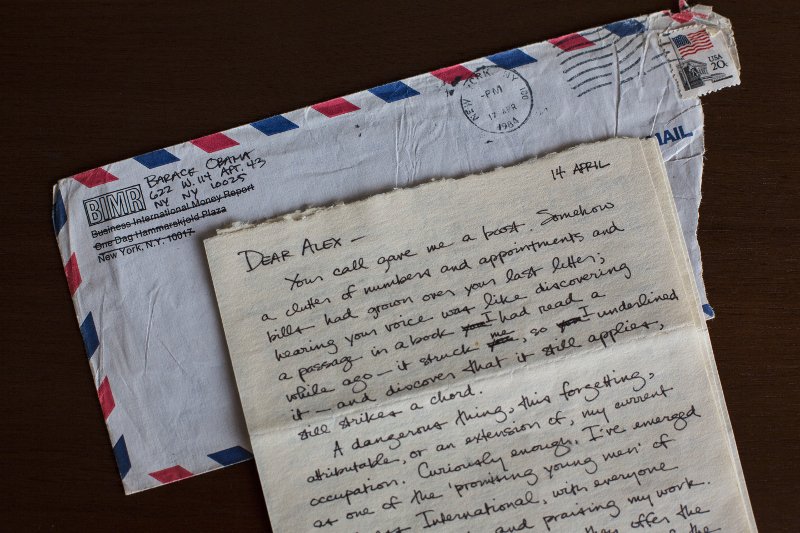 USA
20c
NEW YORK NY 100
-PM
17 APR
1984
MAIL
BARACK OBAMA
622 W. 114 APT. 43
NY NY 10025
BIMR
Business International Money Report
One Dag Hammarskjold Plaza
New York, N.Y. 10017
14 APRIL
DEAR ALEX —
Your call gave me a boost. Somehow
a clutter of numbers and appointments and
bills had grown over your last letter;
hearing your voice was like discovering
a passage in a book you I had read a
while ago — it struck me, so you I underlined
it — and discover that it still applies,
still strikes a chord.
A dangerous thing, this forgetting,
attributable, or an extension of, my current
occupation. Curiously enough, I've emerged
as one of the 'promising young men' of
International, with everyone
and praising my work.
they offer the
the